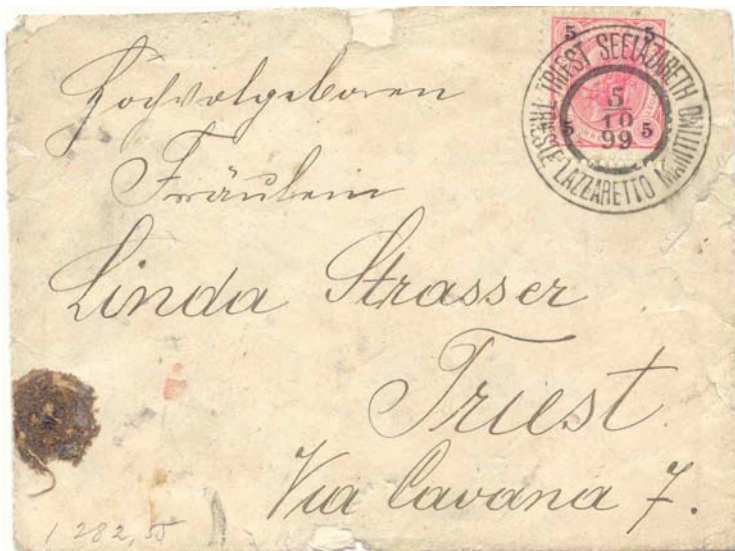 Hochwolgeboren
Fräulein
Linda Strasser
Triest
Via Cavana 7.
5 5
5 5
TRIEST SEELAZARETH
TRIESTE LAZZARETTO MARITTIMO
5
10
99
1 282,55